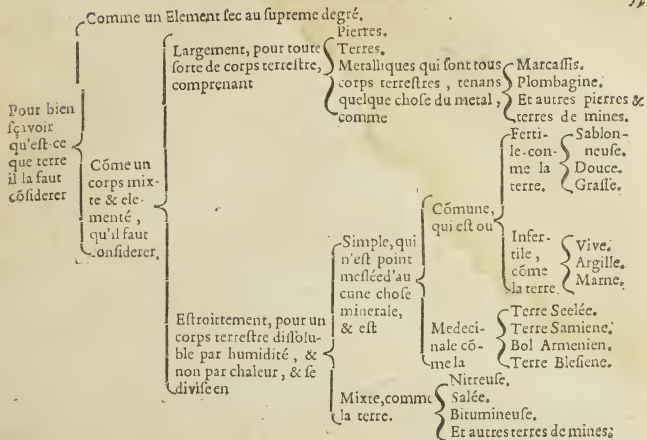 Pour bien
ſçavoir
qu'eſt-ce
que terre
il la faut
cõſiderer
Comme un Element ſec au ſupreme degré.
Cõme un
corps mix-
te & ele-
menté,
qu'il faut
conſiderer,
Largement, pour toute
ſorte de corps terreſtre,
comprenant
Pierres.
Terres.
Metalliques qui ſont tous
corps terreſtres, tenans
quelque choſe du metal,
comme
Marcaſſis.
Plombagine.
Et autres pierres &
terres de mines.
Eſtroittement, pour un
corps terreſtre diſſolu-
ble par humidité, &
non par chaleur, & ſe
diviſe en
Simple, qui
n'eſt point
meſlée d'au
cune choſe
minerale,
& eſt
Cõmune,
qui eſt ou
Ferti-
le-com-
me la
terre.
Sablon-
neuſe.
Douce.
Graſſe.
Infer-
tile,
cõme
la terre.
Vive.
Argille.
Marne.
Medeci-
nale cõ-
me la
Terre Seelée.
Terre Samiene.
Bol Armenien.
Terre Bleſiene.
Mixte, comme
la terre.
Nitreuſe.
Salée.
Bitumineuſe.
Et autres terres de mines;